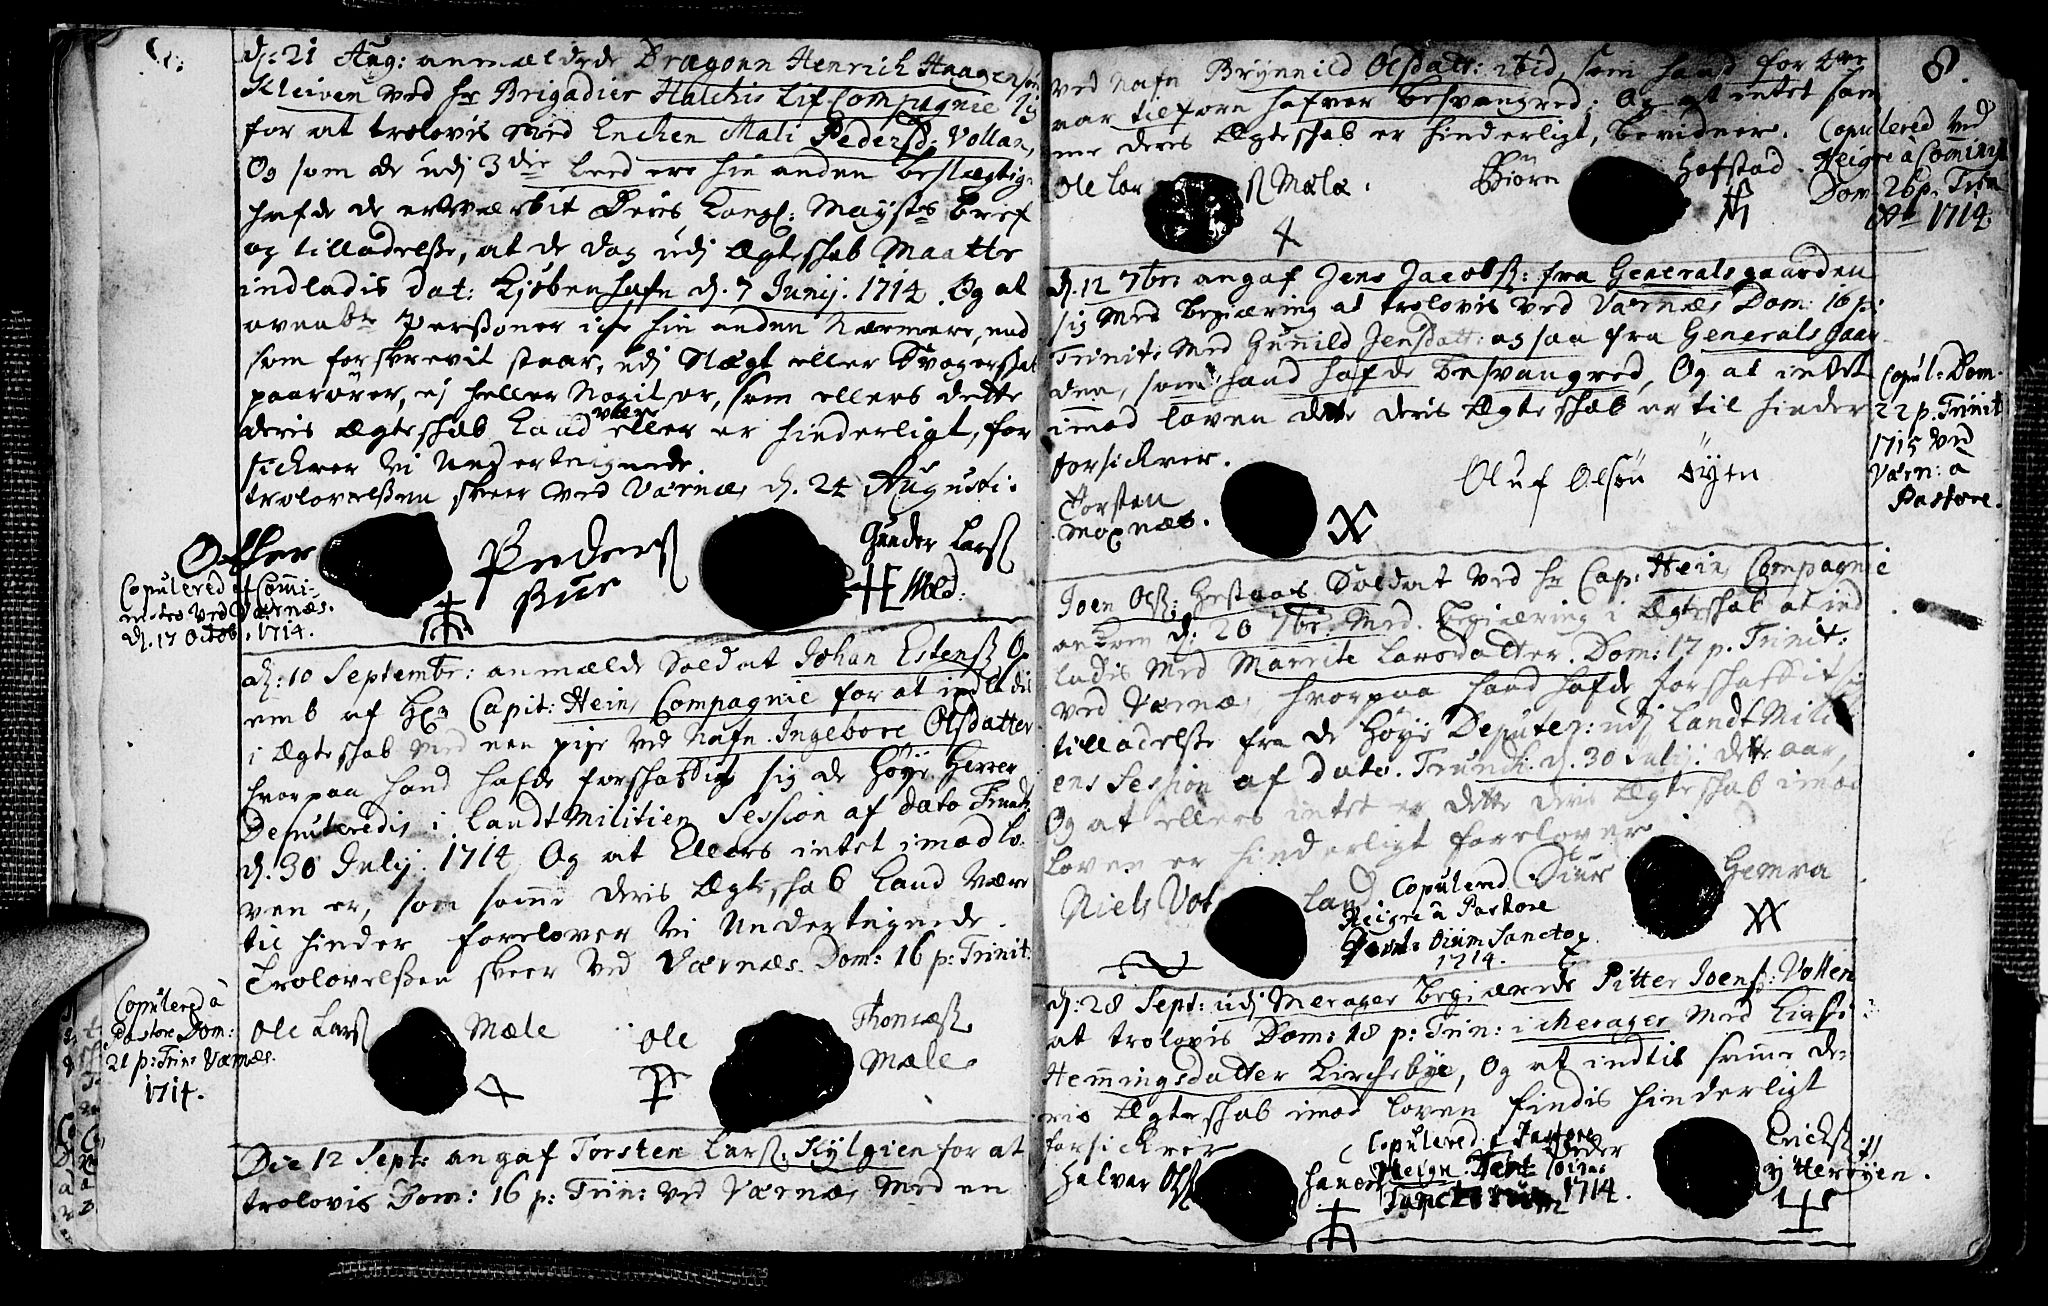 d: 21 Aug: anmældede Dragoun Henrich Haagensøn
Kleiven ved hr Brigadier Hatchis Lif Compagnie sig
for at trolovis med Enchen Mali Pedersd: Vollan,
Og som de udj 3die Leed ere hin anden beslægtig:
hafde de erhværbit Deris Kongl: Mayts bref
og tilladelsse, at de dog udj Ægteskab Maatte
indladis dat: Kjøbenhafn d. 7 Junij. 1714. Og at
ovenbte Personer iche hin anden nærmere, end
som forskrevit staar, udj Slægt eller Svogerskab
paarører, ej heller Nogit er, som ellers dette
deris Ægteskab kand være eller er hinderligt, for
sickrer Vi Undertegnede.
trolovelssen skeer ved Værnæs d. 24 Augusti.
Pedersß
Gunder Larsß
Mæle
Copulered af Commi-
nistro ved Værnæs.
d. 17 Octob: 1714.
d: 10 Septembr: anmælde Soldat Johan Estensß O
emb af Hr Capit: Heins Compagnie for at indladis
i Ægteskab med een pige ved Nafn Ingebore Olsdatter
hvorpaa hand hafde forskaffit sig de Høye Herrer
Deputeredis i LandtMilitien Session af dato Trundh:
d. 30 Julij. 1714 Og at Ellers intet imod Lo-
ven er, som samme deris Ægteskab kand være
til hinder forelover Vi Undertegnede.
Trolovelssen skeer ved Værnæs. Dom: 16 p: Trinit:
Copulered à
Pastore Dom:
21 p: Trin: Værnæs.
1714.
Ole Larsß Mæle Ole Thomæsß
Mæle
Die 12 Sept: angaf Torsten Larsß. Kylgien for at
trolovis Dom: 16 p: Trin: ved Værnæs Med en
8.
ved Nafn Brynnild Olsdatt: ibid, som hand for et
aar tilforn hafver besvangred; Og at intet sam
me deris Ægteskab er hinderligt, bevidner.
Ole Lar ß Mæle: Biørn Hofstad.
Copulered ved
Heigre à Comminist
Dom 26 p. Trin
Ao 1714.
d. 12 7bri angaf Jens Jacobsß: fra Generalsgaarden
sig Med begiæring at trolovis ved Værnæs Dom: 16 p:
Trinit: Med Gunild Jensdatt: og saa fra Generals Gaar-
den, som hand hafde besvangred, Og at intet
imod loven dette deris Ægteskab er til hinder
forsickrer.
Torsten
Moxnæs. Oluf Olsøn Øyen
Copul: Dom.
22 p. Trinit
1715 ved
Værn: a
Pastore.
Joen Olsß: Soldat ved hr Cap: Heins Compagnie
ankom d. 20 7br: Med begiæring i Ægteskab at ind
ladis Med Marrite Larsdatter. Dom: 17 p. Trinit:
ved Værnæs, hvorpaa hand hafde forskaffit sig
tilladelsse fra de Høye Deputer: udj LandtMiliti
ens Session af dato. Trundh: d. 30 Julij: dette aar,
Og at ellers intet er dette deris Ægteskab imod
Loven er hinderligt forelover
Niels Vot land Siur Hemra
Copulered
Heigre à Pastore
Sancto
1714.
d: 28 Sept: udj Merager begiærede Pitter Joensß: Vollen
at trolovis Dom: 18 p: Trin: i Merager Med Kirsti
Hemmingsdatter Kirchebye, Og at indtil samme de-
ris Ægteskab imod loven findis hinderligt
forsickrer
Halvar Olsß Peder Ericksß:
ytterøyen.
Copulered à Pastore
1714.